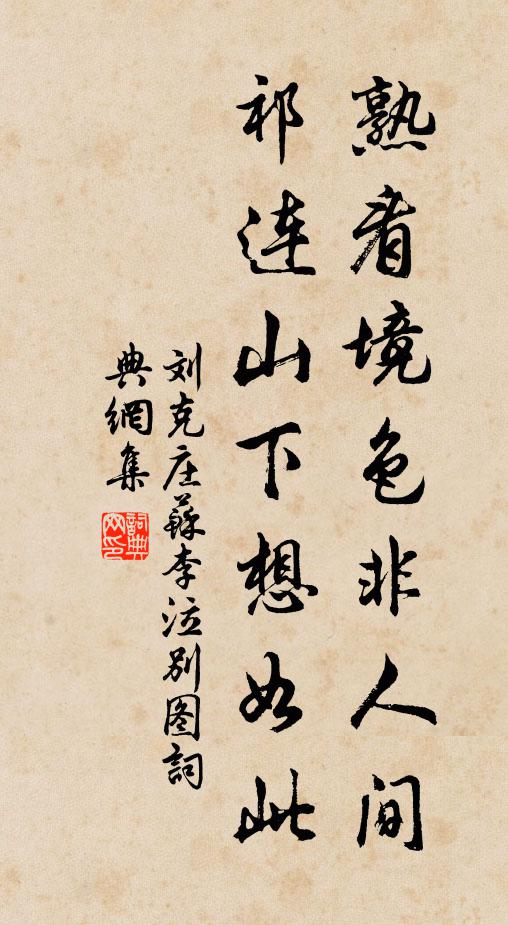 熟看境色非人间
祁连山下想如此
刘克庄苏李泣别图詞
典網集
詞典网印